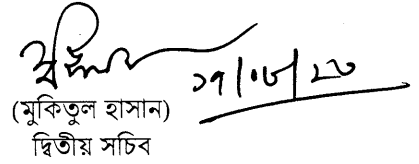 ১৭/০৮/২৩
(মুকিতুল হাসান)
দ্বিতীয় সচিব